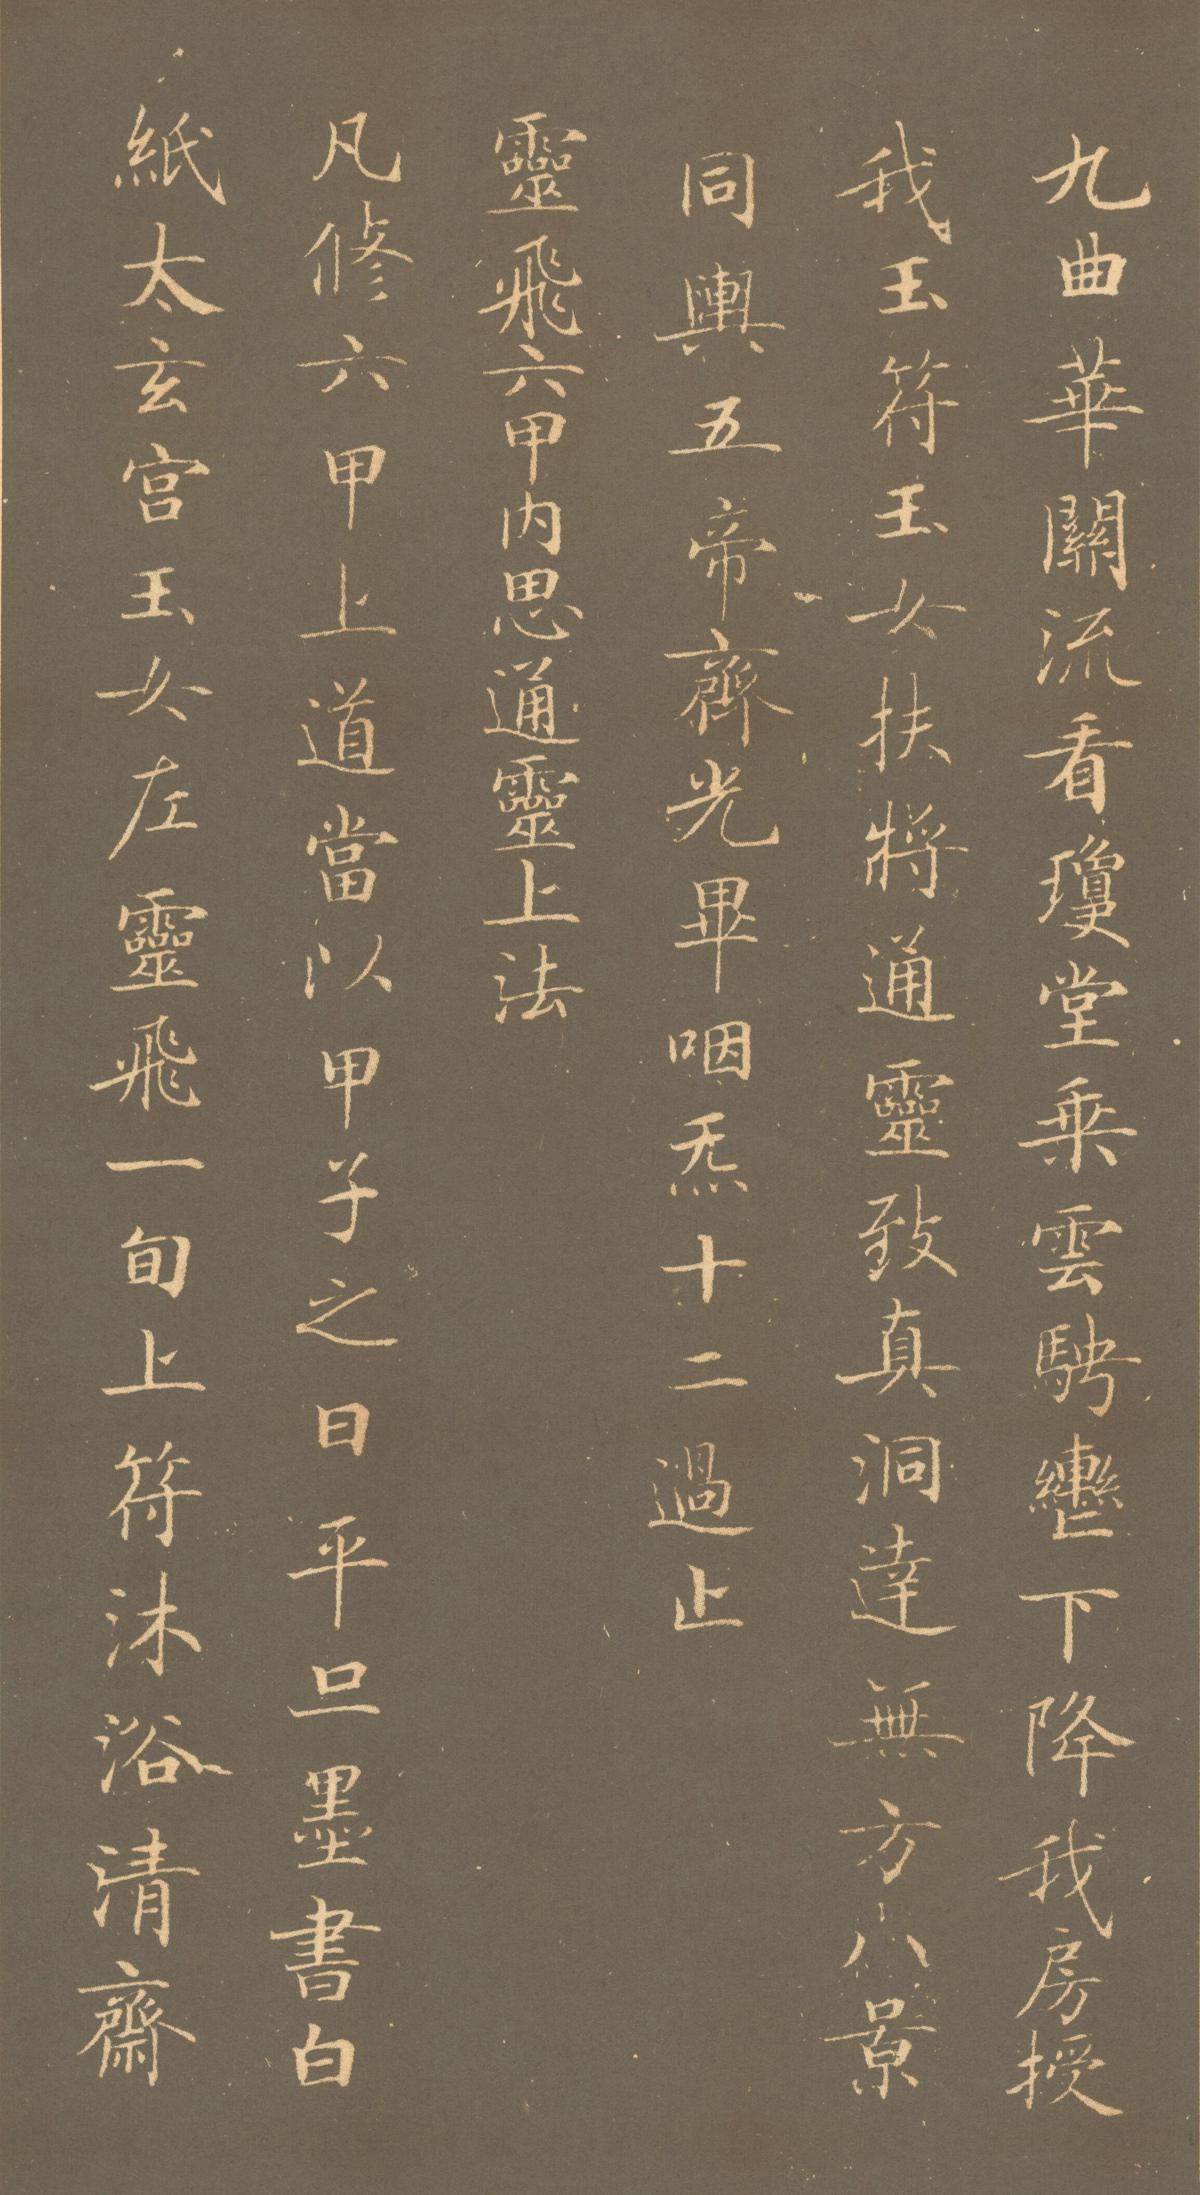 九曲華關流看瓊堂乗雲騁轡下降我房授
我玉符玉女扶將通靈致真洞達無方八景
同輿五帝齊光畢咽炁十二過止
靈飛六甲内思通靈上法
凡修六甲上道當以甲子之日平旦墨書白
紙太玄宫玉女左靈飛一旬上符沐浴清齋